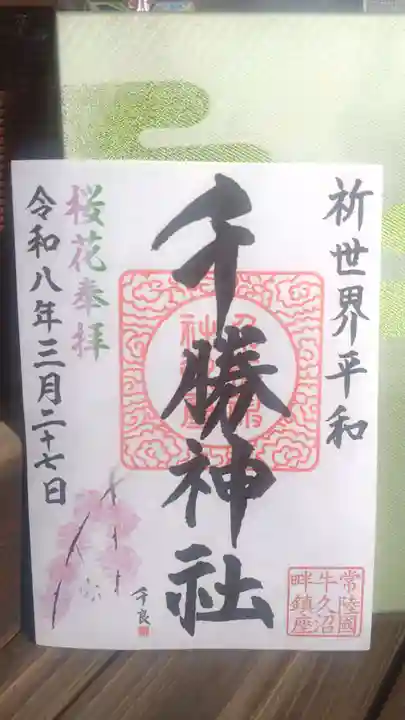 祈世界平和
千勝神社
桜花奉拝
令和八年三月二十七日
常陸國
牛久沼
畔鎮座
千良